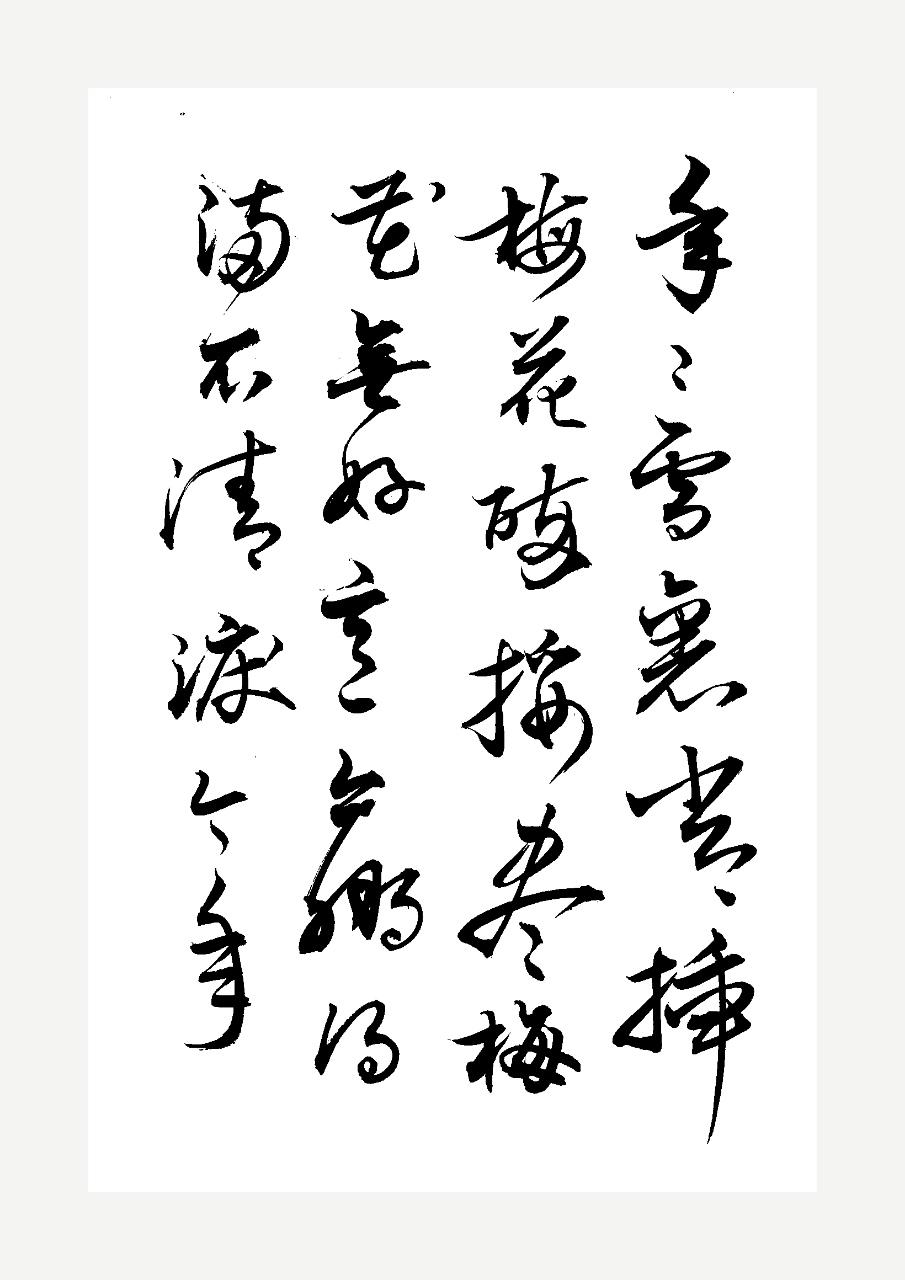 年々雪裏常插
梅花醉挼盡梅
花無好意贏得
滿不清淚今年